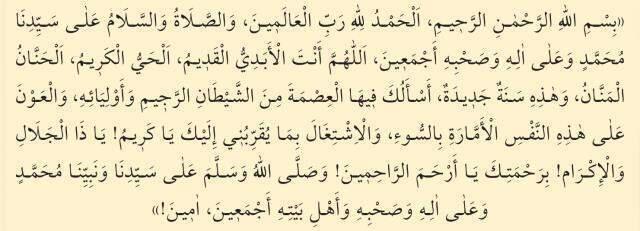 «بِسْمِ اللهِ الرَّحْمٰنِ الرَّحِيمِ، اَلْحَمْدُ لِلهِ رَبِّ الْعَالَمِينَ، وَالصَّلَاةُ وَالسَّلَامُ عَلٰى سَيِّدِنَا
مُحَمَّدٍ وَعَلٰى اٰلِهِ وَصَحْبِهِ أَجْمَعِينَ، اَللّٰهُمَّ أَنْتَ الْأَبَدِيُّ الْقَدِيمُ، اَلْحَيُّ الْكَرِيمُ، اَلْحَنَّانُ
الْمَنَّانُ، وَهٰذِهِ سَنَةٌ جَدِيدَةٌ، أَسْأَلُكَ فِيهَا الْعِصْمَةَ مِنَ الشَّيْطَانِ الرَّجِيمِ وَأَوْلِيَائِهِ، وَالْعَوْنَ
عَلٰى هٰذِهِ النَّفْسِ الْأَمَّارَةِ بِالسُّوءِ، وَالْاِشْتِغَالَ بِمَا يُقَرِّبُنِي إِلَيْكَ يَا كَرِيمُ! يَا ذَا الْجَلَالِ
وَالْإِكْرَامِ! بِرَحْمَتِكَ يَا أَرْحَمَ الرَّاحِمِينَ! وَصَلَّى اللهُ وَسَلَّمَ عَلٰى سَيِّدِنَا وَنَبِيِّنَا مُحَمَّدٍ
وَعَلٰى اٰلِهِ وَصَحْبِهِ وَأَهْلِ بَيْتِهِ أَجْمَعِينَ، اٰمِينَ!»